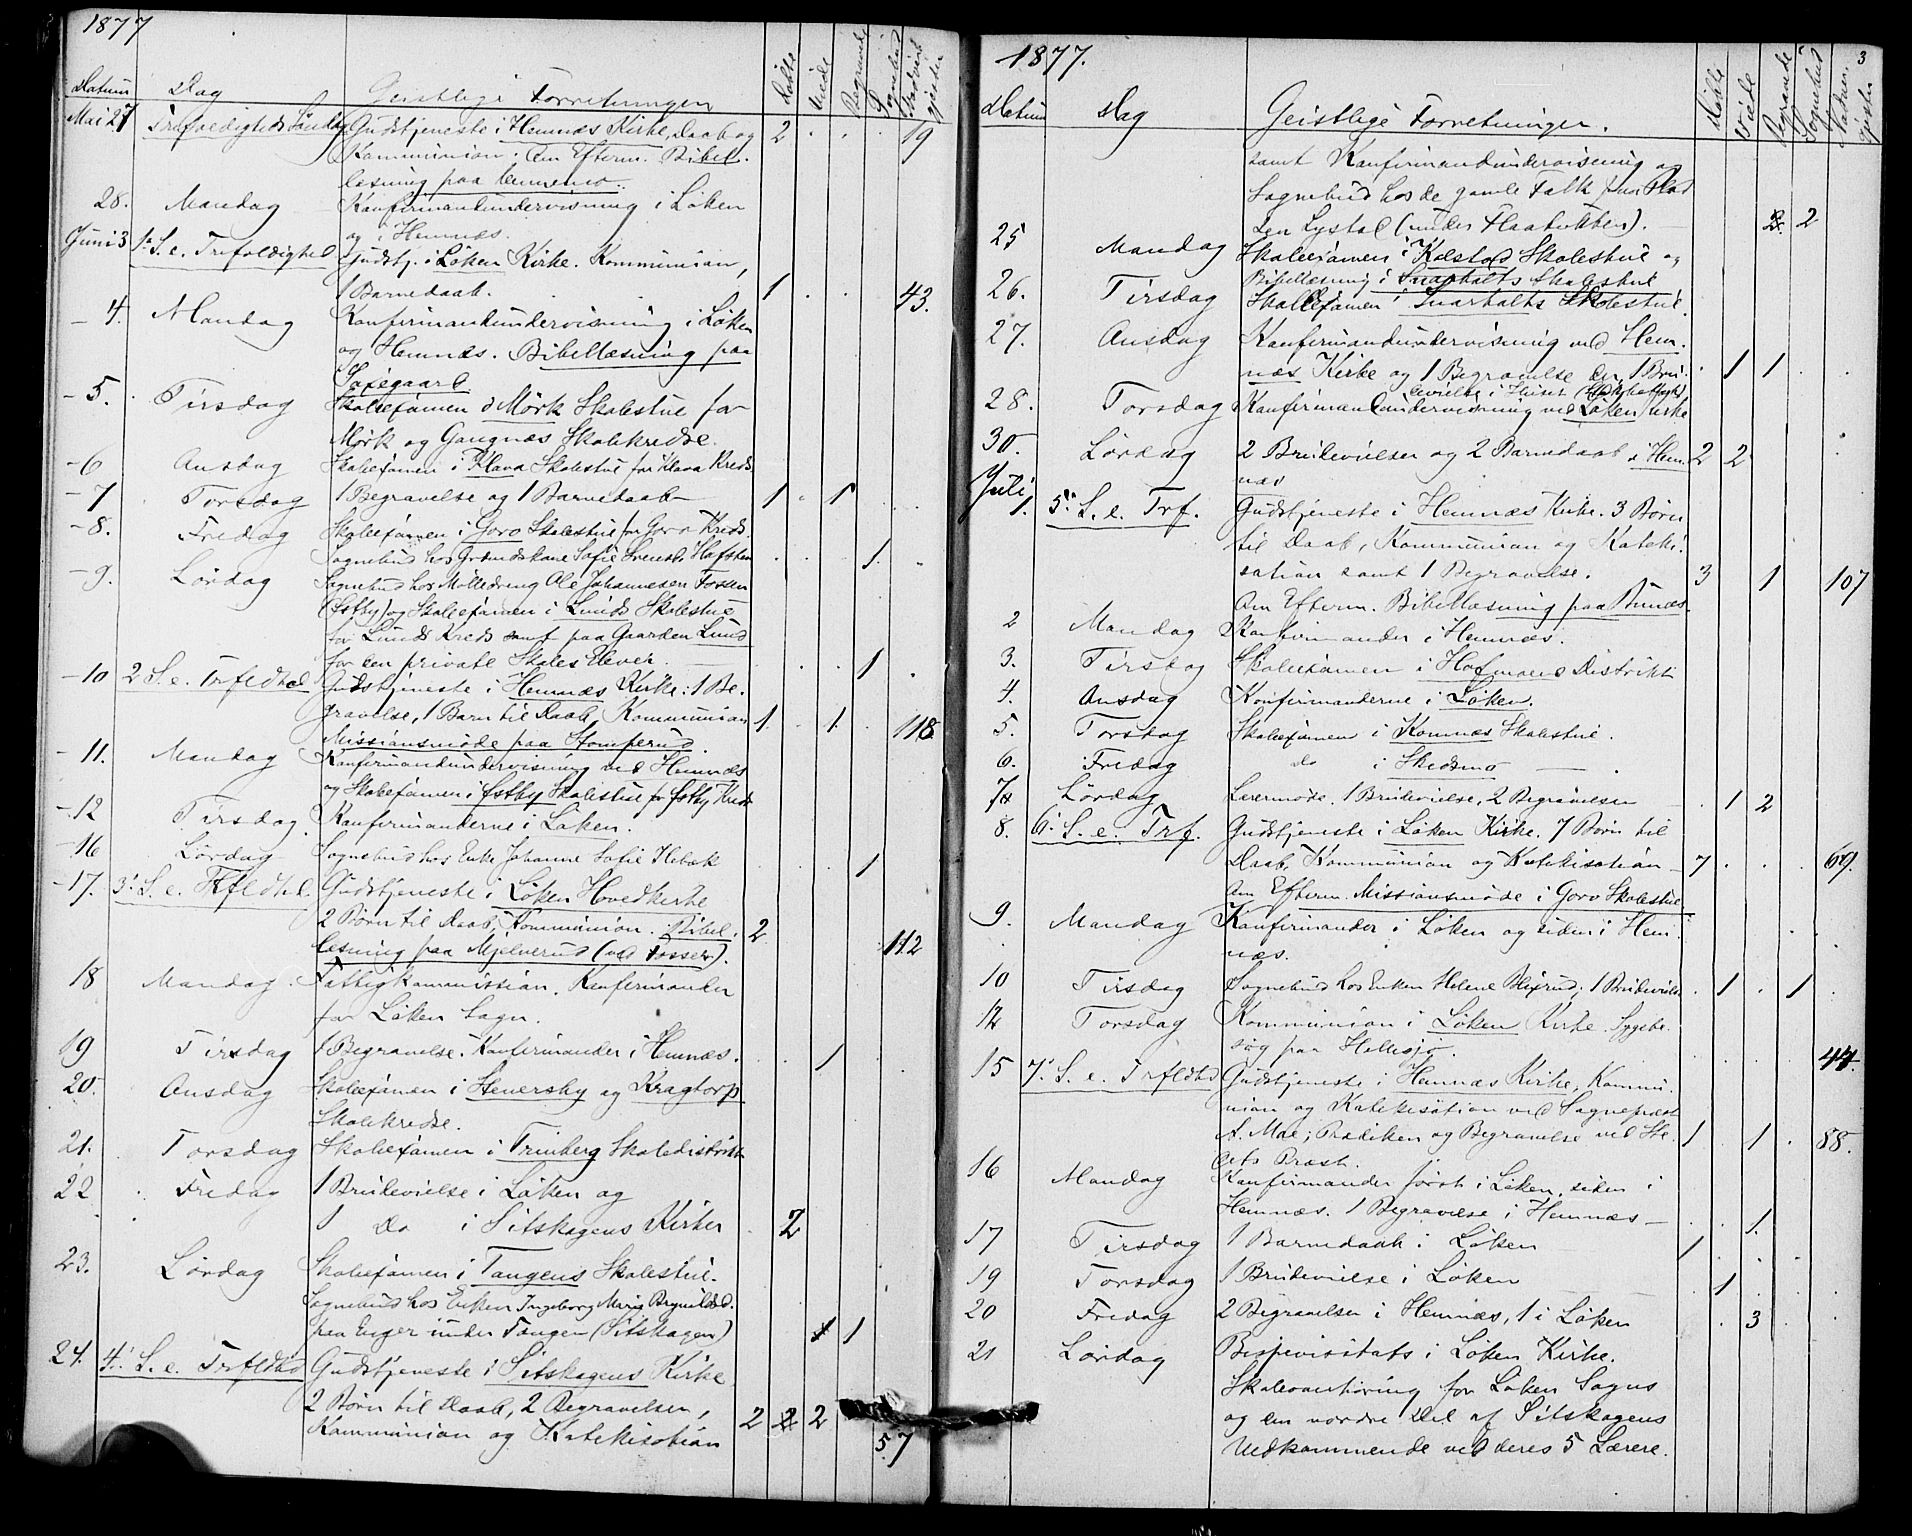 1877
Datum Dag Geistlige Forretningen Døbte Viede Begravede Sognebud Nadverd gjester
Mai 27 Trefoldigheds Søndag Gudstjeneste i Hemnæs Kirke, Daab og 2 19
Kommunion. Om Efterm. Bibel-
læsning paa
28. Mandag Konfirmandundervisning i Løken
og i Hemnæs.
Juni 3 1ste S. e. Trefoldighed Gudstj. i Løken Kirke. Kommunion,
1 Barnedaab. 1 43.
4. Mandag Konfirmandundervisning i Løken
og Hemnæs. Bibellæsning paa
5. Tirsdag Skoleexamen i Mørk Skolestue for
Mørk og Gangnæs Skolekredse.
6 Onsdag Skoleexamen i Flava Skolestue for Flava Kreds
7 Torsdag 1 Begravelse og 1 Barnedaab 1 1
8. Fredag Skoleexamen i Goro Skolestue for Goro Kreds.
Sognebud hos Sofie Hafsten 1
9. Lørdag Sognebud hos Ole Johannesen Fossen
(Østby) og Skoleexamen i Lunds Skolestue
for Lunds Kreds samt paa Gaarden Lund
for den private Skoles Elever. 1
10 2 S. e. Trfldhd Gudstjeneste i Hemnæs Kirke: 1 Be-
gravelse, 1 Barn til Daab, Kommunion 1 1 118
Missionsmøde paa Homperud.
11. Mandag Konfirmandundervisning ved Hemnæs
og Skoleexamen i Østby Skolestue for Østby Kreds
12 Tirsdag Konfirmanderne i Løken.
16 Lørdag Sognebud hos Enke Johanne Sofie 1
17. 3' S. e. Trfldhd. Gudstjeneste i Løken Hovedkirke
2 Børn til Daab, Kommunion. Bibel- 2
læsning paa Mjelverud (ved Fosser). 112
18 Mandag Fattigkommission. Konfirmander
for Løken Sogn.
19 Tirsdag 1 Begravelse. Konfirmander i Hemnæs. 1
20. Onsdag Skoleexamen i Henersby og Kragtorp
Skolekredse.
21. Torsdag Skoleexamen i Trinberg Skoledistrikt
22 Fredag 1 Brudevielse i Løken og
1 Do i Sitskogens Kirker 2
23. Lørdag Skoleexamen i Tangens Skolestue.
Sognebud hos Enken Ingeborg Marie
paa Enger under Tangen (Sitskogen) 1 1
24. 4. S. e. Trfldhd Gudstjeneste i Sitskogens Kirke
2 Børn til Daab, 2 Begravelser,
Kommunion og Katekisation 2 2 2 57
1877. 3
Datum Dag Geistlige Forretninger. Døbte Viede Begravede Sognebud Nadver gjester
samt Konfirmandundervisning og
Sognebud hos de gamle Folk paa Plad
sen Lystad (under Flaatukken). 2 2
25 Mandag Skoleexamen i Kolstad Skolestue og
Bibellæsning i Snarholts Skolestue
26. Tirsdag Skoleexamen i Snarholts Skolestue.
27. Onsdag Konfirmandundervisning ved Hem-
næs Kirke og 1 Begravelse og 1 Bru- 1 1
devielse i Huset
28. Torsdag Konfirmandundervisning ved Løken Kirke
30. Lørdag 2 Brudevielser og 2 Barnedaab i Hem- 2 2
næs
Juli
1. 5' S. e. Trf. Gudstjeneste i Hemnæs Kirke. 3 Børn
til Daab, Kommunion og Kateki-
sation samt 1 Begravelse. 3 1 107
Om Efterm. Bibellæsning paa Bunæs
2 Mandag Konfirmander i Hemnæs.
3. Tirsdag Skoleexamen i Hofmoens Distrikt
4. Onsdag Konfirmanderne i Løken.
5. Torsdag Skoleexamen i Komnæs Skolestue.
6. Fredag Do i Skedsmo
7 Lørdag Lærermøde. 1 Brudevielse, 2 Begravelser 1 2
8. 6' S. e. Trf. Gudstjeneste i Løken Kirke. 7 Børn til
Daab, Kommunion og Katekisation 7 69.
Om Efterm. Missionsmøde i Goro Skolestue
9. Mandag Konfirmander i Løken og siden i Hem-
næs.
10 Tirsdag Sognebud hos Enken Helene Blixrud; 1 Brudevielse 1 1
12 Torsdag Kommunion i Løken Kirke. Sygebe-
søg paa Hellesjø. 44.
15 7' S. e. Trfldhd Gudstjeneste i Hemnæs Kirke, Kommu-
nion og Katekisation ved Sogneprest
A. Moe; Prædiken og Begravelse ved Ste- 1 1 88.
dets Præst.
16 Mandag Konfirmander først i Løken, siden i
Hemnæs. 1 Begravelse i Hemnæs 1.
17 Tirsdag 1 Barnedaab i Løken 1
19 Torsdag 1 Brudevielse i Løken 1
20 Fredag 2 Begravelser i Hemnæs, 1 i Løken 3
21 Lørdag Bispevisitats i Løken Kirke.
Skoleoverhøring for Løken Sogns
og den nordre Del af Sitskogens
Vedkommende ved deres 5 Lærere.